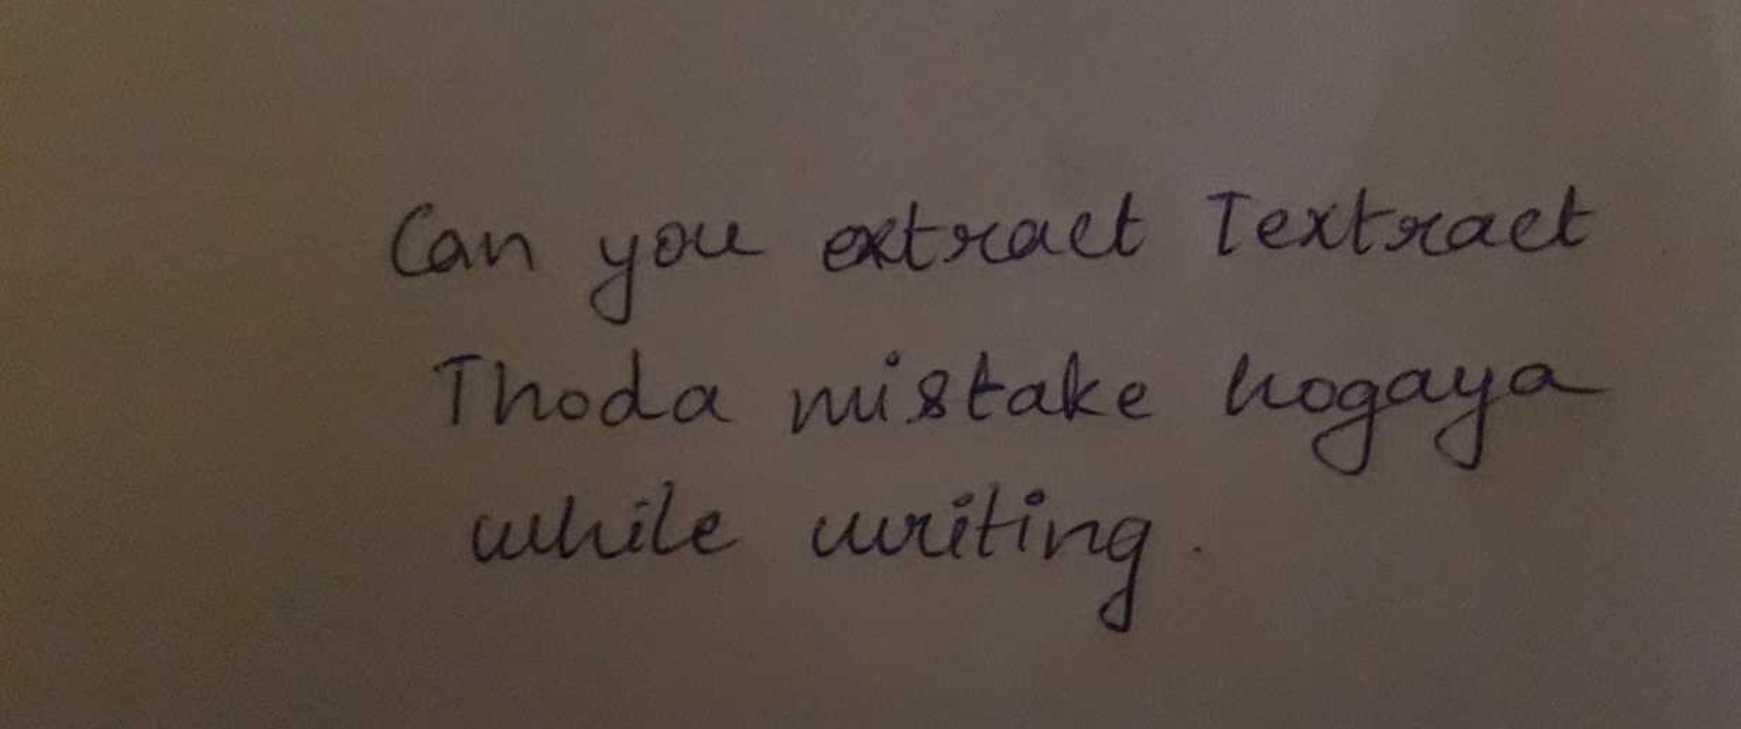 Can you extract Textract
Thoda mistake hogaya
while writing.